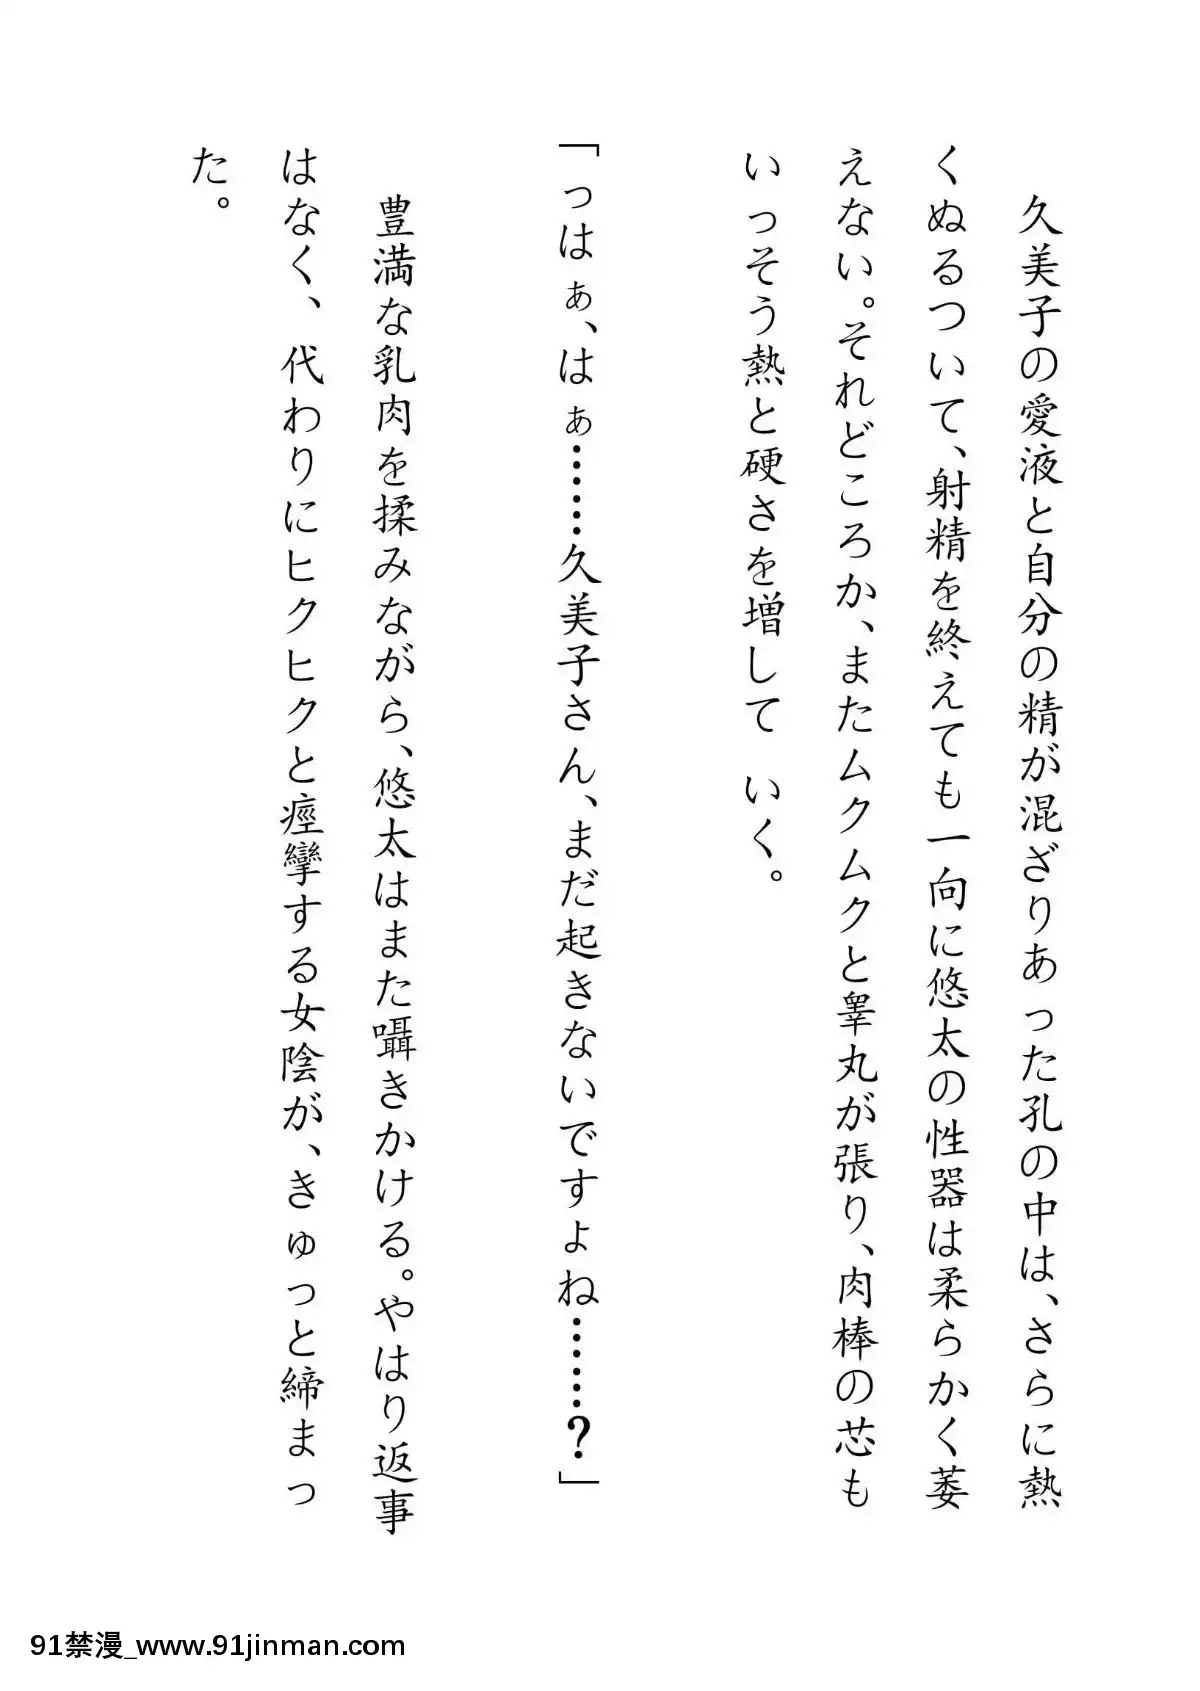 久美子の愛液と自分の精が混ざりあった孔の中は、さらに熱
くぬるついて、射精を終えても一向に悠太の性器は柔らかく萎
えない。それどころか、またムクムクと睾丸が張り、肉棒の芯も
いっそう熱と硬さを増して いく。
「っはぁ、はぁ……久美子さん、まだ起きないですよね……?」
豊満な乳肉を揉みながら、悠太はまた囁きかける。やはり返事
はなく、代わりにヒクヒクと痙攣する女陰が、きゅっと締まっ
た。
91禁漫_www.91jinman.com